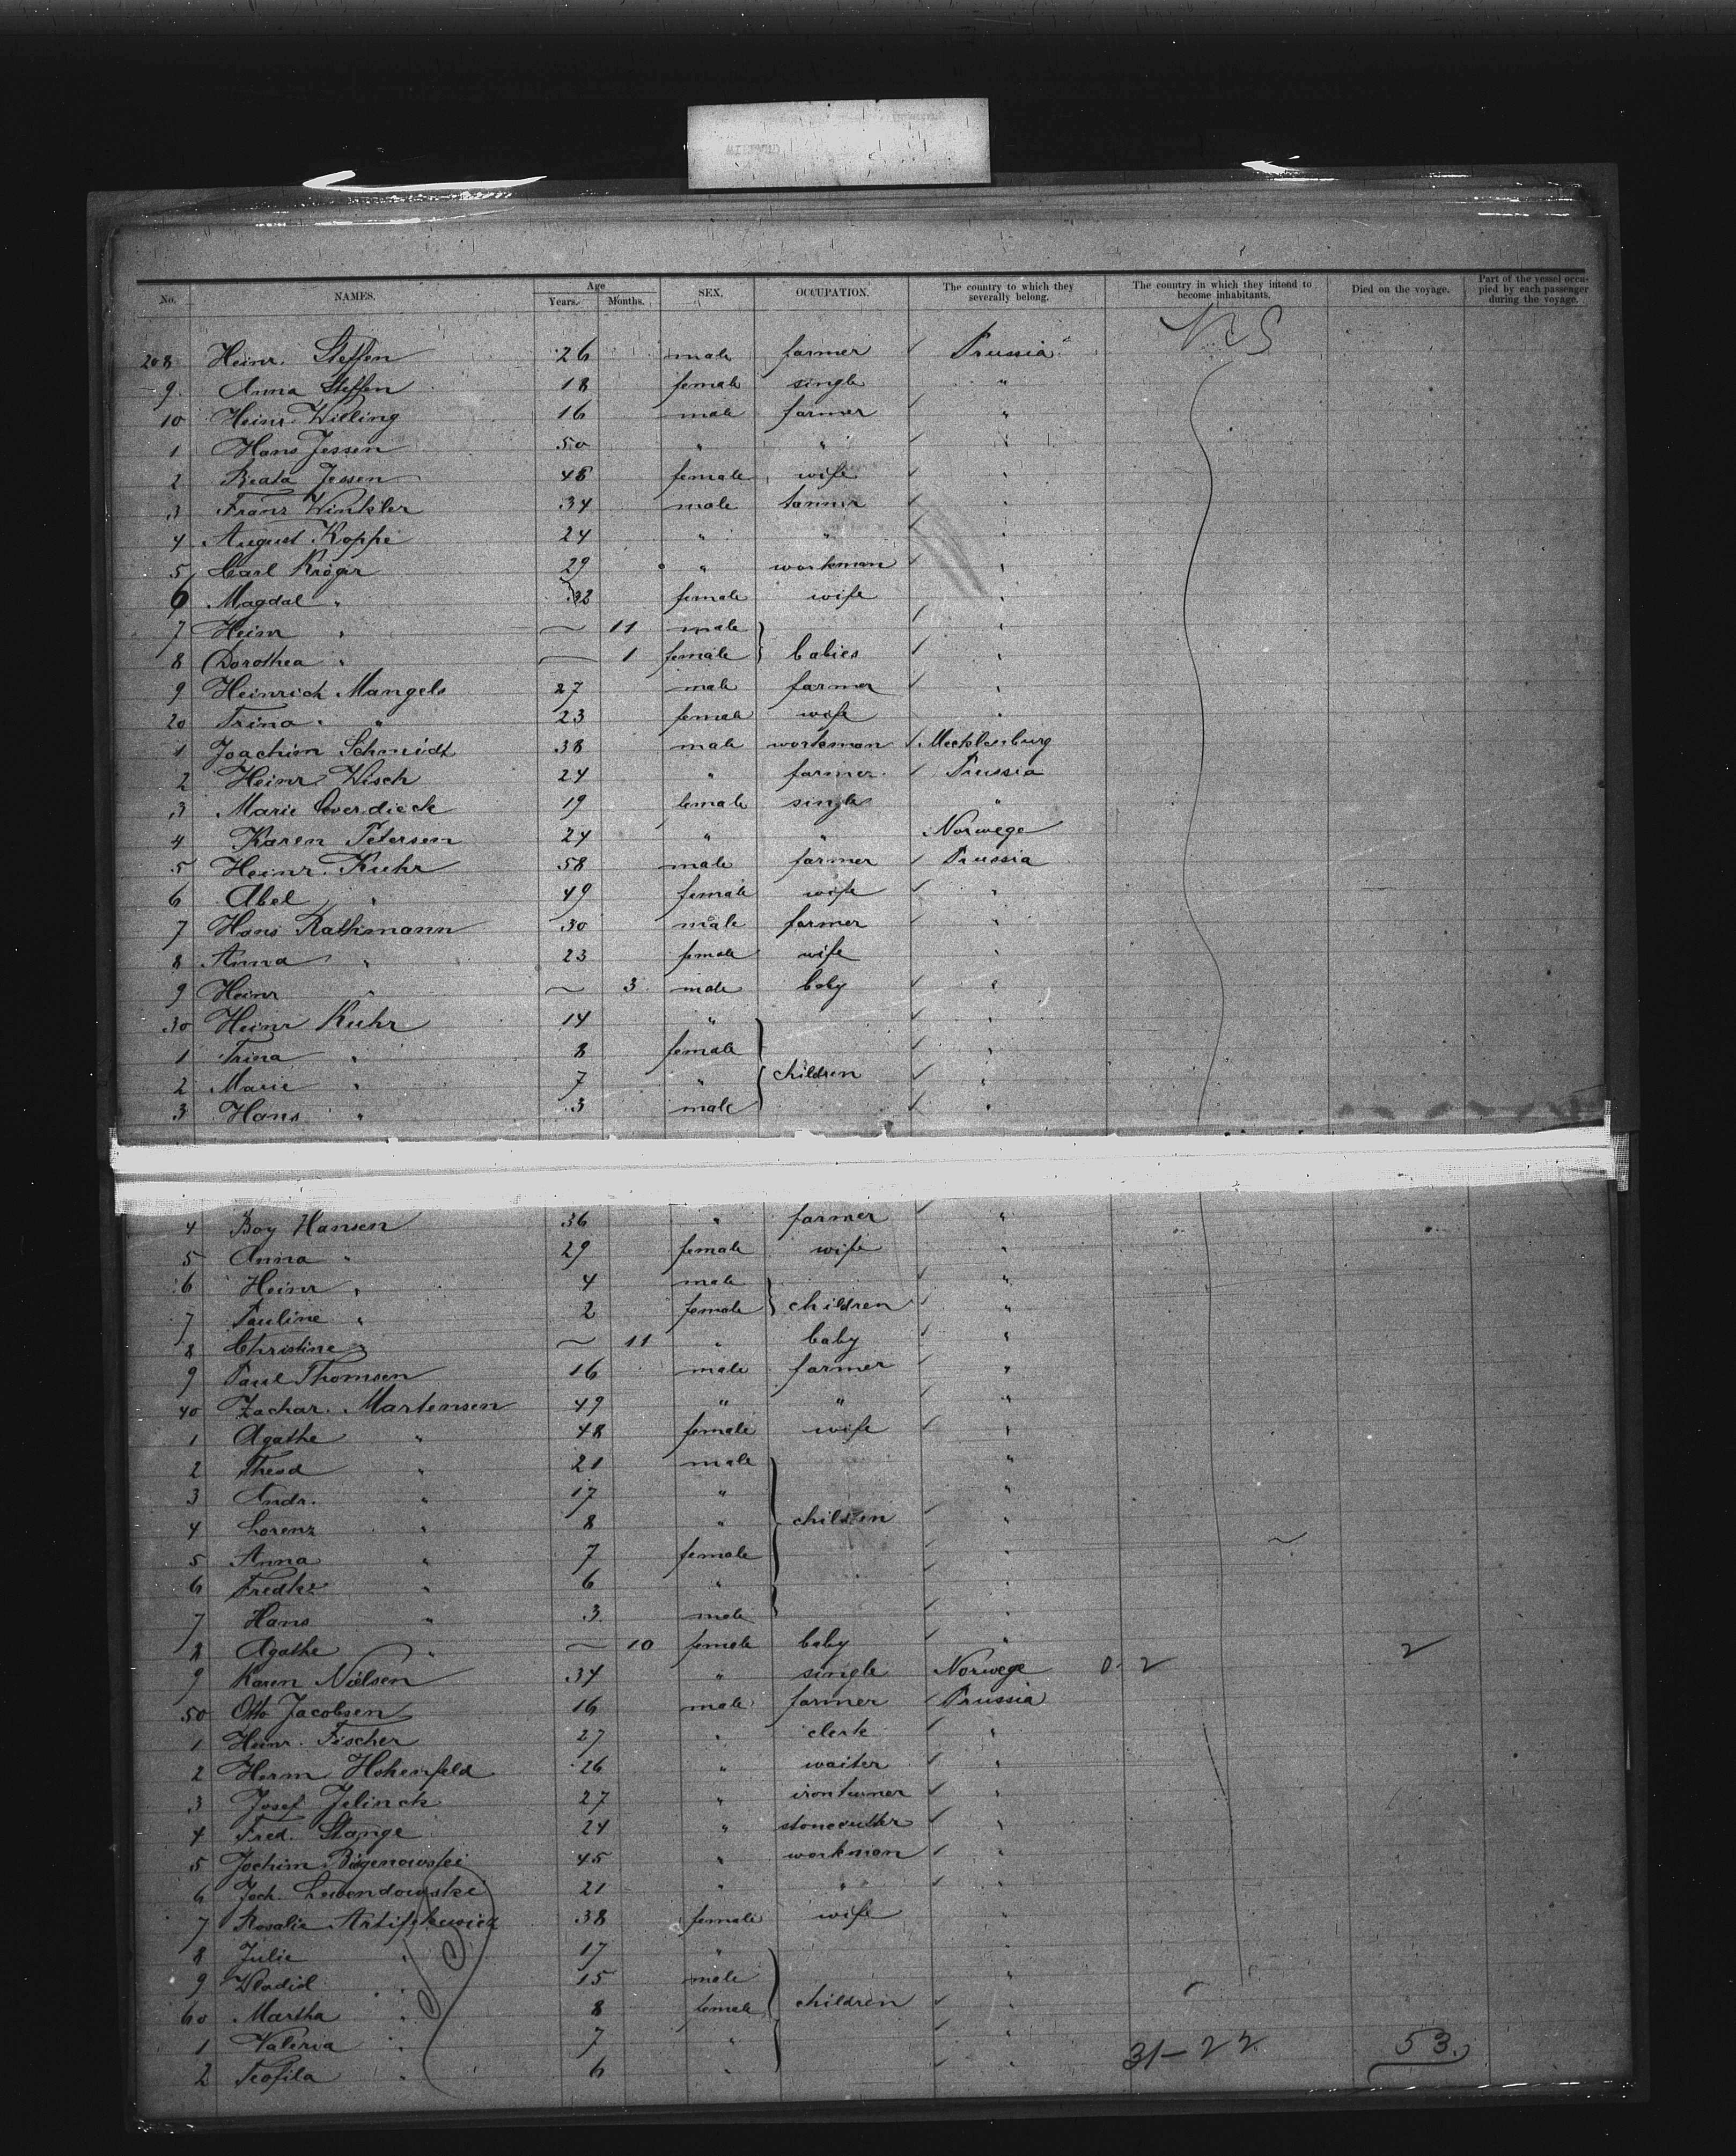 No. NAMES. Age Years. Months. SEX. OCCUPATION. The country to which they severally belong. The country in which they intend to become inhabitants. Died on the voyage. Part of the vessel occupied by each passenger during the voyage.
208 Heinr. Steffen 26 male farmer ✓ Prussia
9. Anna Steffen 18 female single "
10 Heinr. Willing 16 male farmer ✓ "
1 Hans Jessen 50 " " ✓ "
2 Beata Jessen 48 female wife ✓ "
3 Franz Winkler 34 male tanner ✓ "
4 August Koppe 24 " " ✓ "
5 Carl Kröger 29 " workman ✓ "
6 Magdal " 32 female wife "
7 Heinr " — 11 male ✓ "
8 Dorothea " — 1 female } babies ✓ "
9 Heinrich Mangels 27 male farmer ✓ "
20 Trina " 23 female wife "
1 Joachim Schmidt 38 male workman ✓ Mecklenburg
2 Heinr. Wisch 24 " farmer ✓ Prussia
3 Marie Overdieck 19 female single "
4 Karen Petersen 24 " " Norwege
5 Heinr. Kuhr 58 male farmer ✓ Prussia
6 Abel " 49 female wife ✓ "
7 Hans Rathmann 30 male farmer ✓ "
8 Anna " 23 female wife "
9 Heinr " — 3 male baby ✓ "
30 Heinr Kuhr 14 " ✓ "
1 Trina " 8 female ✓ "
2 Marie " 7 " } children ✓ "
3 Hans " 3 male ✓ "
4 Boy Hansen 36 " farmer ✓ "
5 Anna " 29 female wife "
6 Heinr " 4 male ✓ "
7 Pauline " 2 female } children ✓ "
8 Christine " — 11 " baby ✓ "
9 Paul Thomsen 16 male farmer ✓ "
40 Zachar. Martensen 49 " " ✓ "
1 Agathe " 48 female wife ✓ "
2 Theod " 21 male "
3 Andr. " 17 " "
4 Lorenz " 8 " } children ✓ "
5 Anna " 7 female ✓ "
6 Fredke " 6 " "
7 Hans " 3 male ✓ "
8 Agathe " — 10 female baby ✓ " 2
9 Karen Nielsen 34 " single Norwege 2
50 Otto Jacobsen 16 male farmer ✓ Prussia
1 Heinr. Fischer 27 " clerk ✓ "
2 Herm Hohenfeld 26 " waiter ✓ "
3 Josef Jelinek 27 " ironturner ✓ "
4 Fred. Stange 24 " stonecutter ✓ "
5 Jochim 45 " workman ✓ "
6 Joch. Lewendowski 21 " " ✓ "
7 Rosalie 38 female wife "
8 Julie " 17 " "
9 Wladisl " 15 male "
60 Martha " 8 female } children ✓ "
1 Valeria " 7 " ✓ "
2 Teofila " 6 " ✓ "
31-22 53.